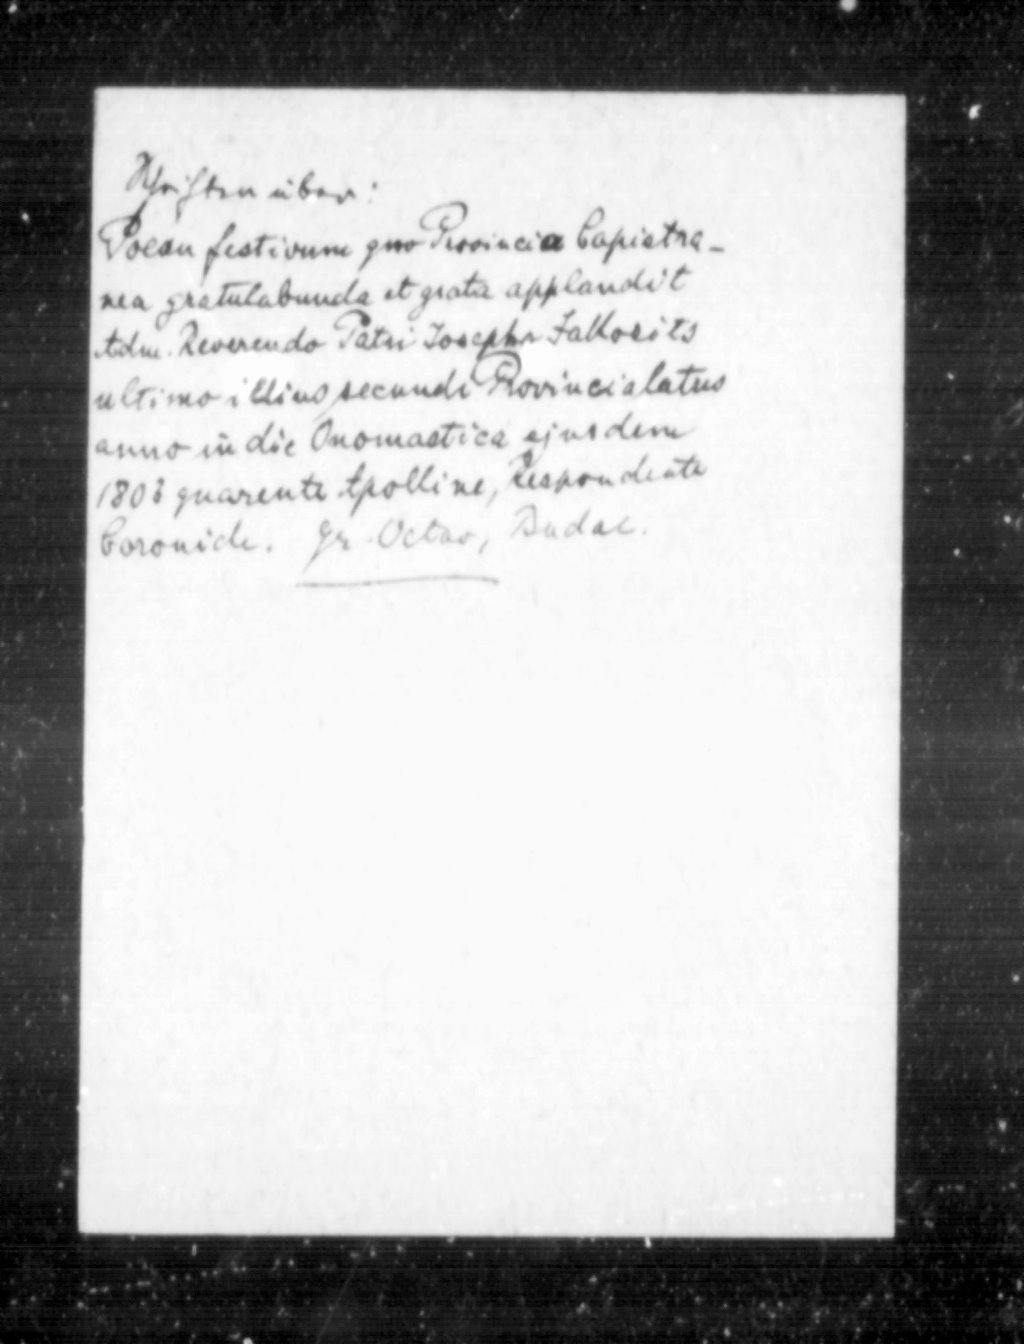 Schriften über:
Poean festivum quo Provincia Capistra-
nea gratulabunda et grata applaudit
Adm. Reverendo Patri Josepho Falkovits
ultimo illius secundi Provincialatus
anno in die Onomastica ejusdem
1803 quaerente Apolline, Respondente
Coronide. Gr. Octav, Budae.